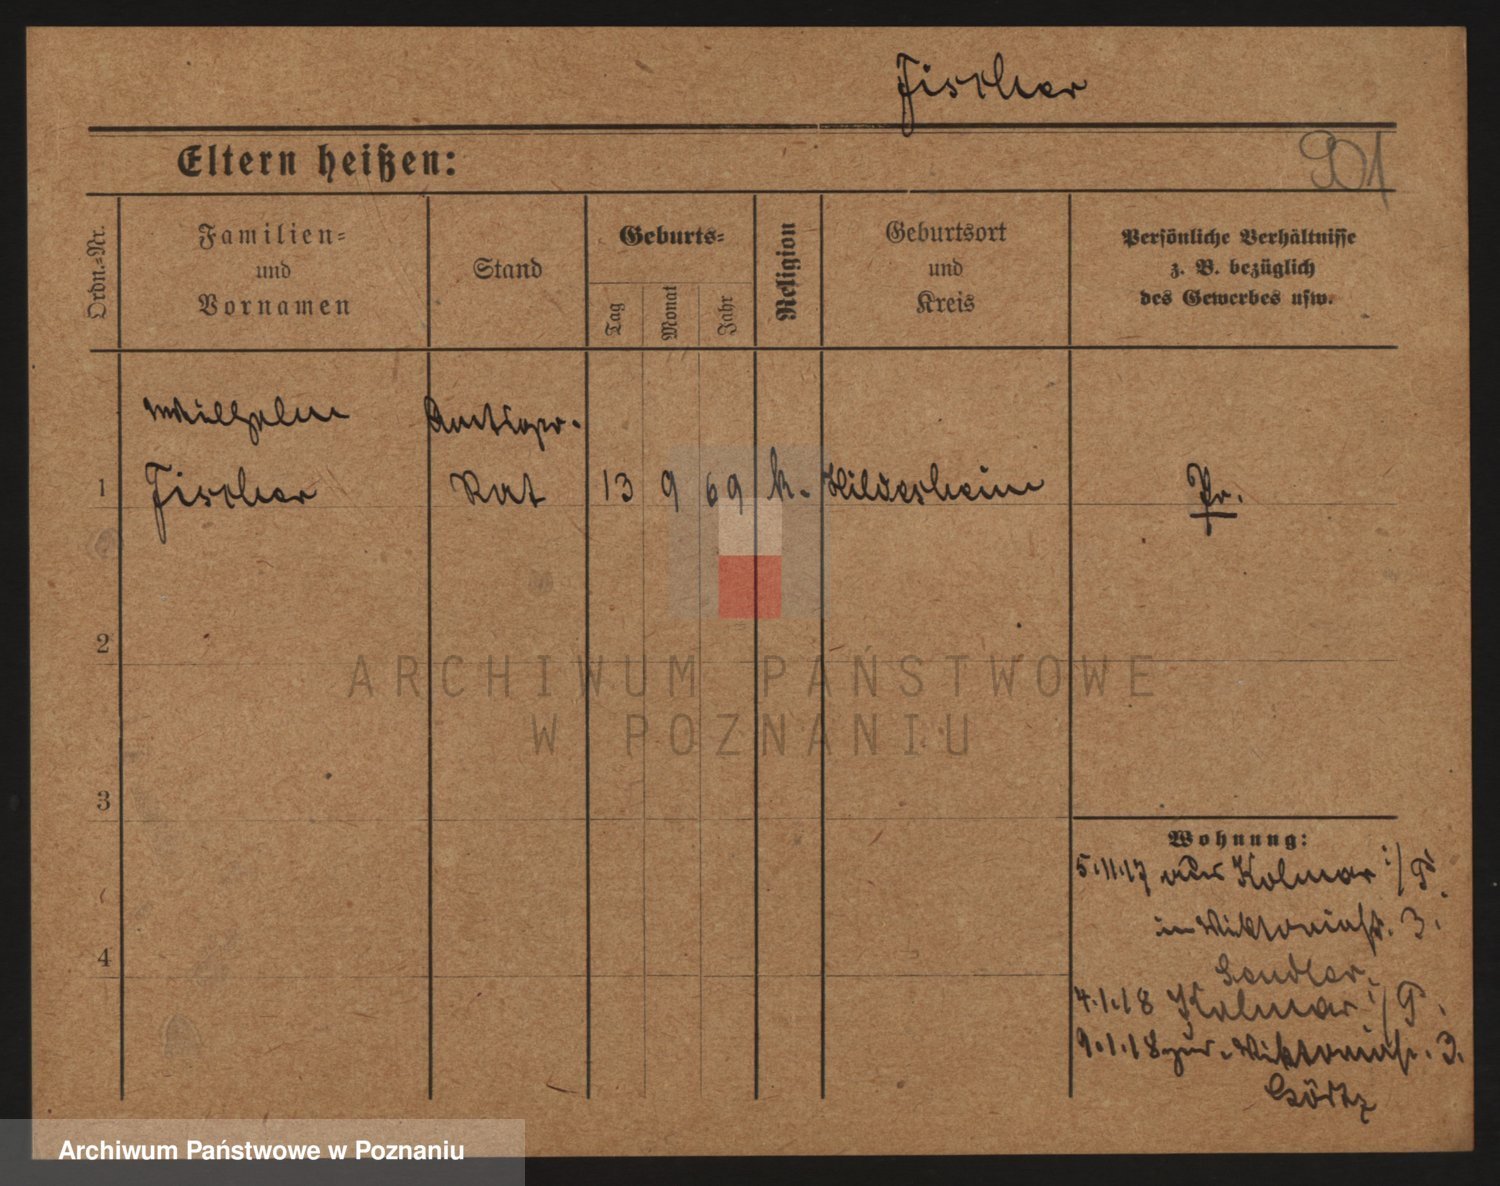 Fischer
901
Eltern heißen:
Ordn.-Nr.
Familien-
und
Vornamen
Stand
Geburts-
Tag
Monat
Jahr
Religion
Geburtsort
und
Kreis
Persönliche Verhältnisse
z. B. bezüglich
des Gewerbes usw.
Wilhelm
1 Fischer Rat 13 9 69 k. Hildesheim Pr.
2
3
4
Wohnung:
5.11.17 aus Kolmar i/P.
in Viktoriastr. 3.
4.1.18 Kolmar i/P.
9.1.18 zur. Viktoriastr. 3.
ARCHIWUM PAŃSTWOWE
W POZNANIU
Archiwum Państwowe w Poznaniu